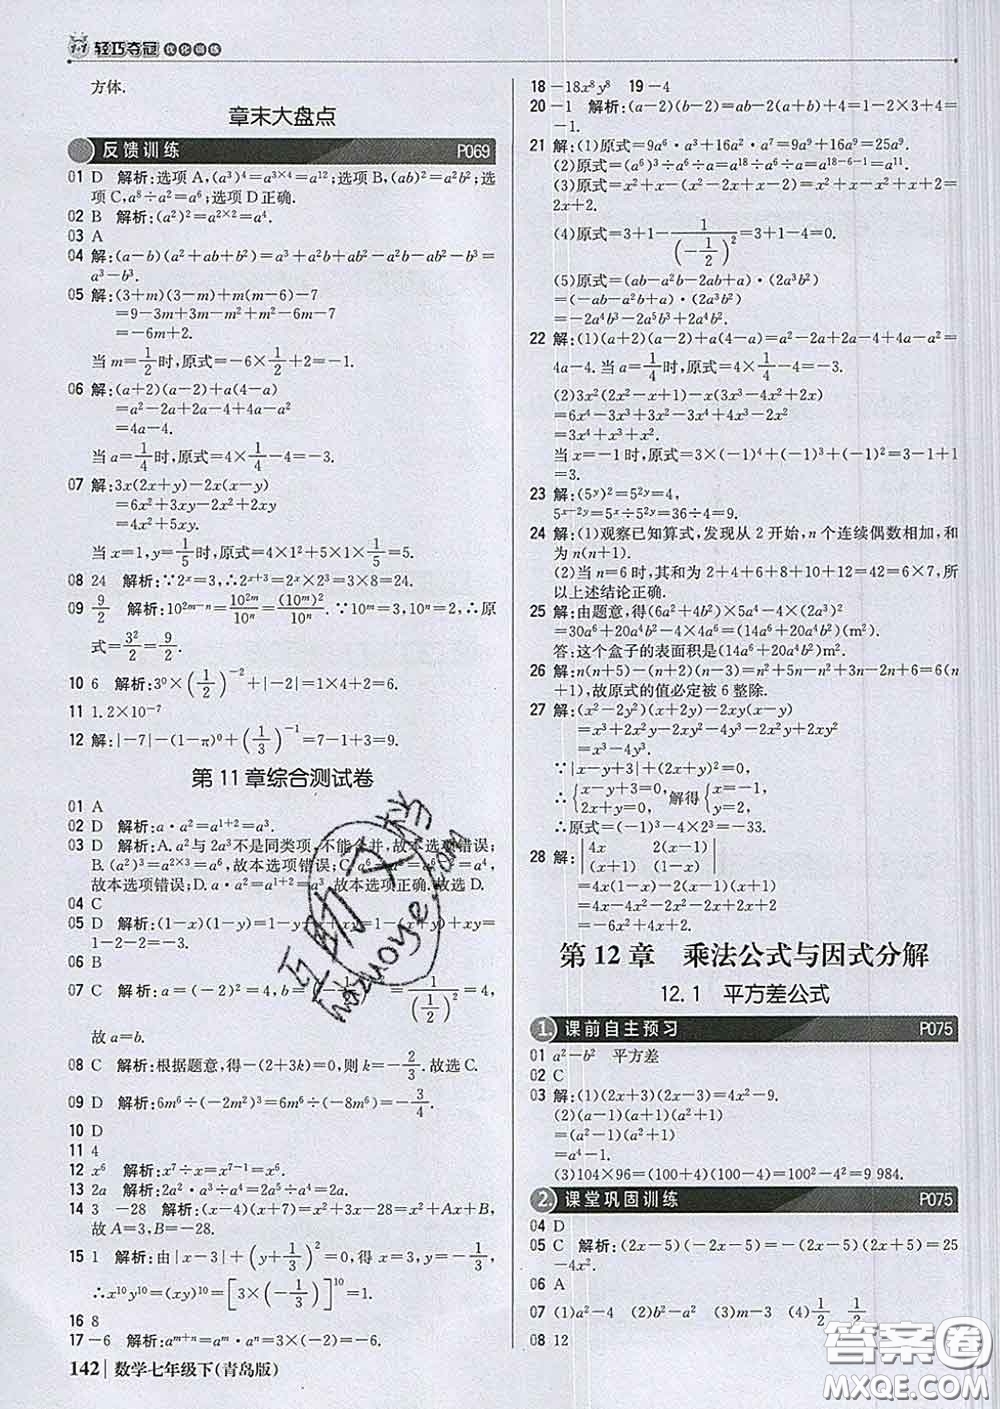 1+1 轻巧夺冠 优化训练
方体.
章末大盘点
反馈训练 P069
01 D 解析:选项A,(a³)⁴=a³ˣ⁴=a¹²;选项B,(ab)²=a²b²;选
项C,a⁸÷a²=a⁶;选项D正确.
02 B 解析:(a²)²=a²ˣ²=a⁴.
03 A
04 解:(a-b)(a²+ab+b²)=a³+a²b+ab²-a²b-ab²-b³=
a³-b³.
05 解:(3+m)(3-m)+m(m-6)-7
=9-3m+3m-m²+m²-6m-7
=-6m+2.
当m=1/2时,原式=-6×1/2+2=-1.
06 解:(a+2)(a-2)+a(4-a)
=a²-2a+2a-4+4a-a²
=4a-4.
当a=1/4时,原式=4×1/4-4=-3.
07 解:3x(2x+y)-2x(x-y)
=6x²+3xy-2x²+2xy
=4x²+5xy.
当x=1,y=1/5时,原式=4×1²+5×1×1/5=5.
08 24 解析:∵2ˣ=3,∴2ˣ⁺³=2ˣ×2³=3×8=24.
09 9/2 解析:10²ᵐ⁻ⁿ=10²ᵐ/10ⁿ=(10ᵐ)²/10ⁿ.∵10ᵐ=3,10ⁿ=2,∴原
式=3²/2=9/2.
10 6 解析:3⁰×(1/2)⁻²+|-2|=1×4+2=6.
11 1.2×10⁻⁷
12 解:|-7|-(1-π)⁰+(1/3)⁻¹=7-1+3=9.
第11章综合测试卷
01 A
02 D 解析:a·a²=a¹⁺²=a³.
03 D 解析:A.a²与2a³不是同类项,不能合并,故本选项错误;
B.(a²)³=a²ˣ³=a⁶,故本选项错误;C.a⁶÷a²=a⁶⁻²=a⁴,
故本选项错误;D.a·a²=a¹⁺²=a³,故本选项正确.故选D.
04 C
05 D 解析:(1-x)(1-y)=1-y-x+xy=1-(x+y)+xy=
1-2-2=-3.
06 B
07 C 解析:a=(-2)²=4,b=1/(1/2)²=4,
故a=b.
08 C 解析:根据题意,得-(2+3k)=0,解得k=-2/3.故选C.
09 D 解析:6m⁶÷(-2m²)³=6m⁶÷(-8m⁶)=-3/4.
10 D
11 4
12 x⁶ 解析:x⁷÷x=x⁷⁻¹=x⁶.
13 2a 解析:2a²·a³÷a⁴=2a⁵÷a⁴=2a.
14 3 -28 解析:(x-4)(x+7)=x²+3x-28=x²+Ax+B,
故A=3,B=-28.
15 1 解析:由|x-3|+(y+1/3)²=0,得x=3,y=-1/3,
∴x¹⁰y¹⁰=(xy)¹⁰=[3×(-1/3)]¹⁰=1.
16 8
17 -6 解析:aᵐ⁺ⁿ=aᵐ·aⁿ=3×(-2)=-6.
142 数学七年级下(青岛版)
18 -18x⁸y⁸ 19 -4
20 -1 解析:(a-2)(b-2)=ab-2(a+b)+4=1-2×3+4=
-1.
21 解:(1)原式=9a⁶·a³+16a²·a⁷=9a⁹+16a⁹=25a⁹.
(2)原式=(a⁶)³÷a⁶÷a=a¹⁸÷a⁶÷a=a¹⁸⁻⁶⁻¹=a¹¹.
(3)原式=x²+x-(x²-2x+x-2)=x²+x-x²+x+2=
2x+2.
(4)原式=3+1-1/(-1/2)²=3+1-4=0.
(5)原式=(ab-a²b-2ab+a)·(2a³b²)
=(-ab-a²b+a)·(2a³b²)
=-2a⁴b³-2a⁵b³+2a⁴b².
22 解:(1)(a+2)(a-2)+a(4-a)=a²-2a+2a-4+4a-a²=
4a-4.当a=1/4时,原式=4×1/4-4=-3.
(2)3x²(2x²-x+1)-x(3x³-4x²+2x)
=6x⁴-3x³+3x²-3x⁴+4x³-2x²
=3x⁴+x³+x².
当x=-1时,原式=3×(-1)⁴+(-1)³+(-1)²=3-1+1
=3.
23 解:(5ʸ)²=5²ʸ=4,
5ˣ⁻²ʸ=5ˣ÷5²ʸ=36÷4=9.
24 解:(1)观察已知算式,发现从2开始,n个连续偶数相加,和
为n(n+1).
(2)当n=6时,其和为2+4+6+8+10+12=42=6×7,所
以上述结论正确.
25 解:由题意,得(6a²+4b²)×5a⁴-4×(2a³)²
=30a⁶+20a⁴b²-4×4a⁶=(14a⁶+20a⁴b²)(m²).
答:这个盒子的表面积是(14a⁶+20a⁴b²)m².
26 解:n(n+5)-(n+2)(n-3)=n²+5n-n²+3n-2n+6=6(n
+1),故原式的值必定被6整除.
27 解:(x²-2y²)(x+2y)-2xy(x-y)
=x³+2x²y-2xy²-4y³-2x²y+2xy²
=x³-4y³.
∵|x-y+3|+(2x+y)²=0,
∴{x-y+3=0, 2x+y=0, 解得{x=-1, y=2.
∴原式=(-1)³-4×2³=-33.
28 解:|4x 2(x-1)
(x+1) (1-x)|
=4x(1-x)-2(x-1)(x+1)
=4x-4x²-2x²+2
=-6x²+4x+2.
第12章 乘法公式与因式分解
12.1 平方差公式
1. 课前自主预习 P075
01 a²-b² 平方差
02 C
03 解:(1)(2x+3)(2x-3)=4x²-9.
(2)(a-1)(a+1)(a²+1)
=(a²-1)(a²+1)
=a⁴-1.
(3)104×96=(100+4)(100-4)=100²-4²=9 984.
2. 课堂巩固训练 P075
04 D
05 C 解析:(2x-5)(-2x-5)=-(2x-5)(2x+5)=25
-4x².
06 A
07 (1)a²-4 (2)b²-a² (3)m-3 (4)1/2 1/2
08 12
答案圈
MXQE.COM